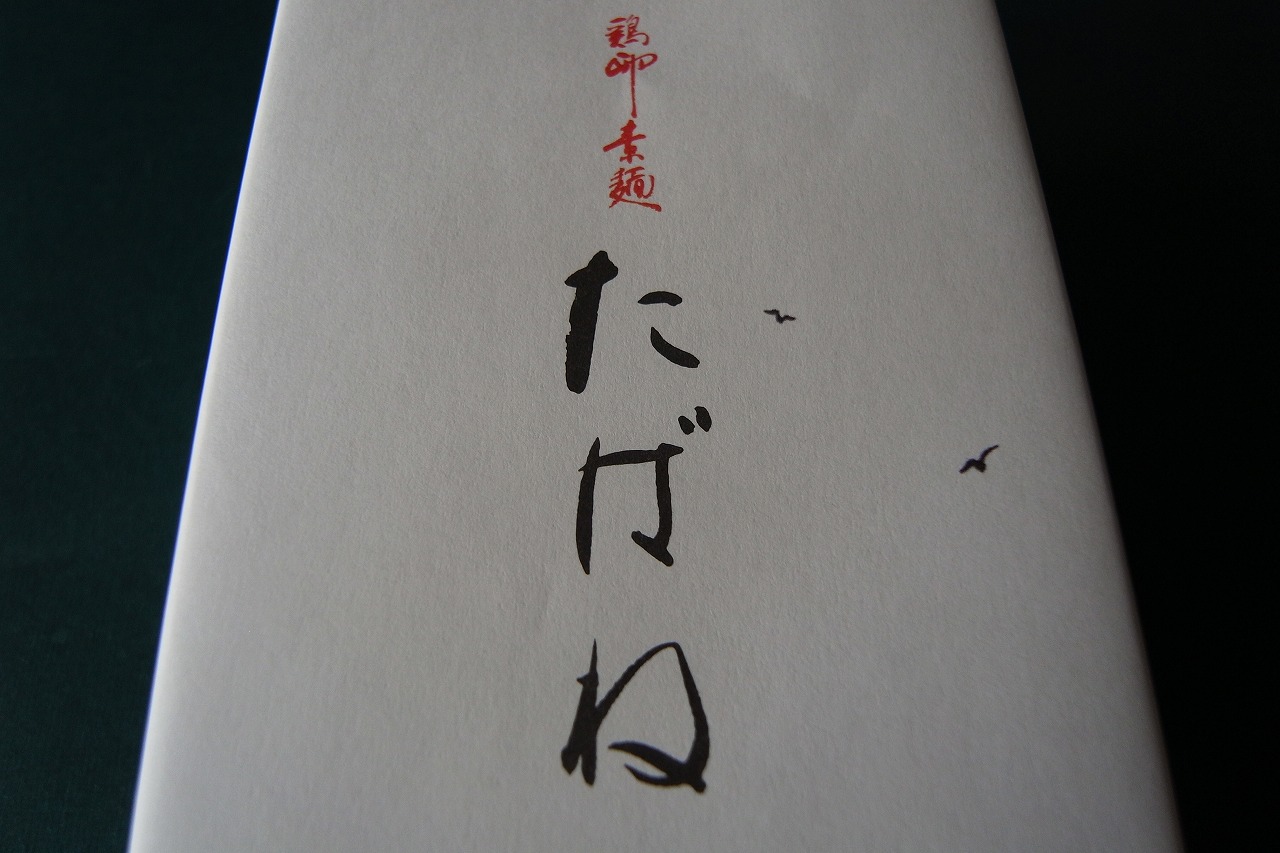 鶏卵素麺
たばね